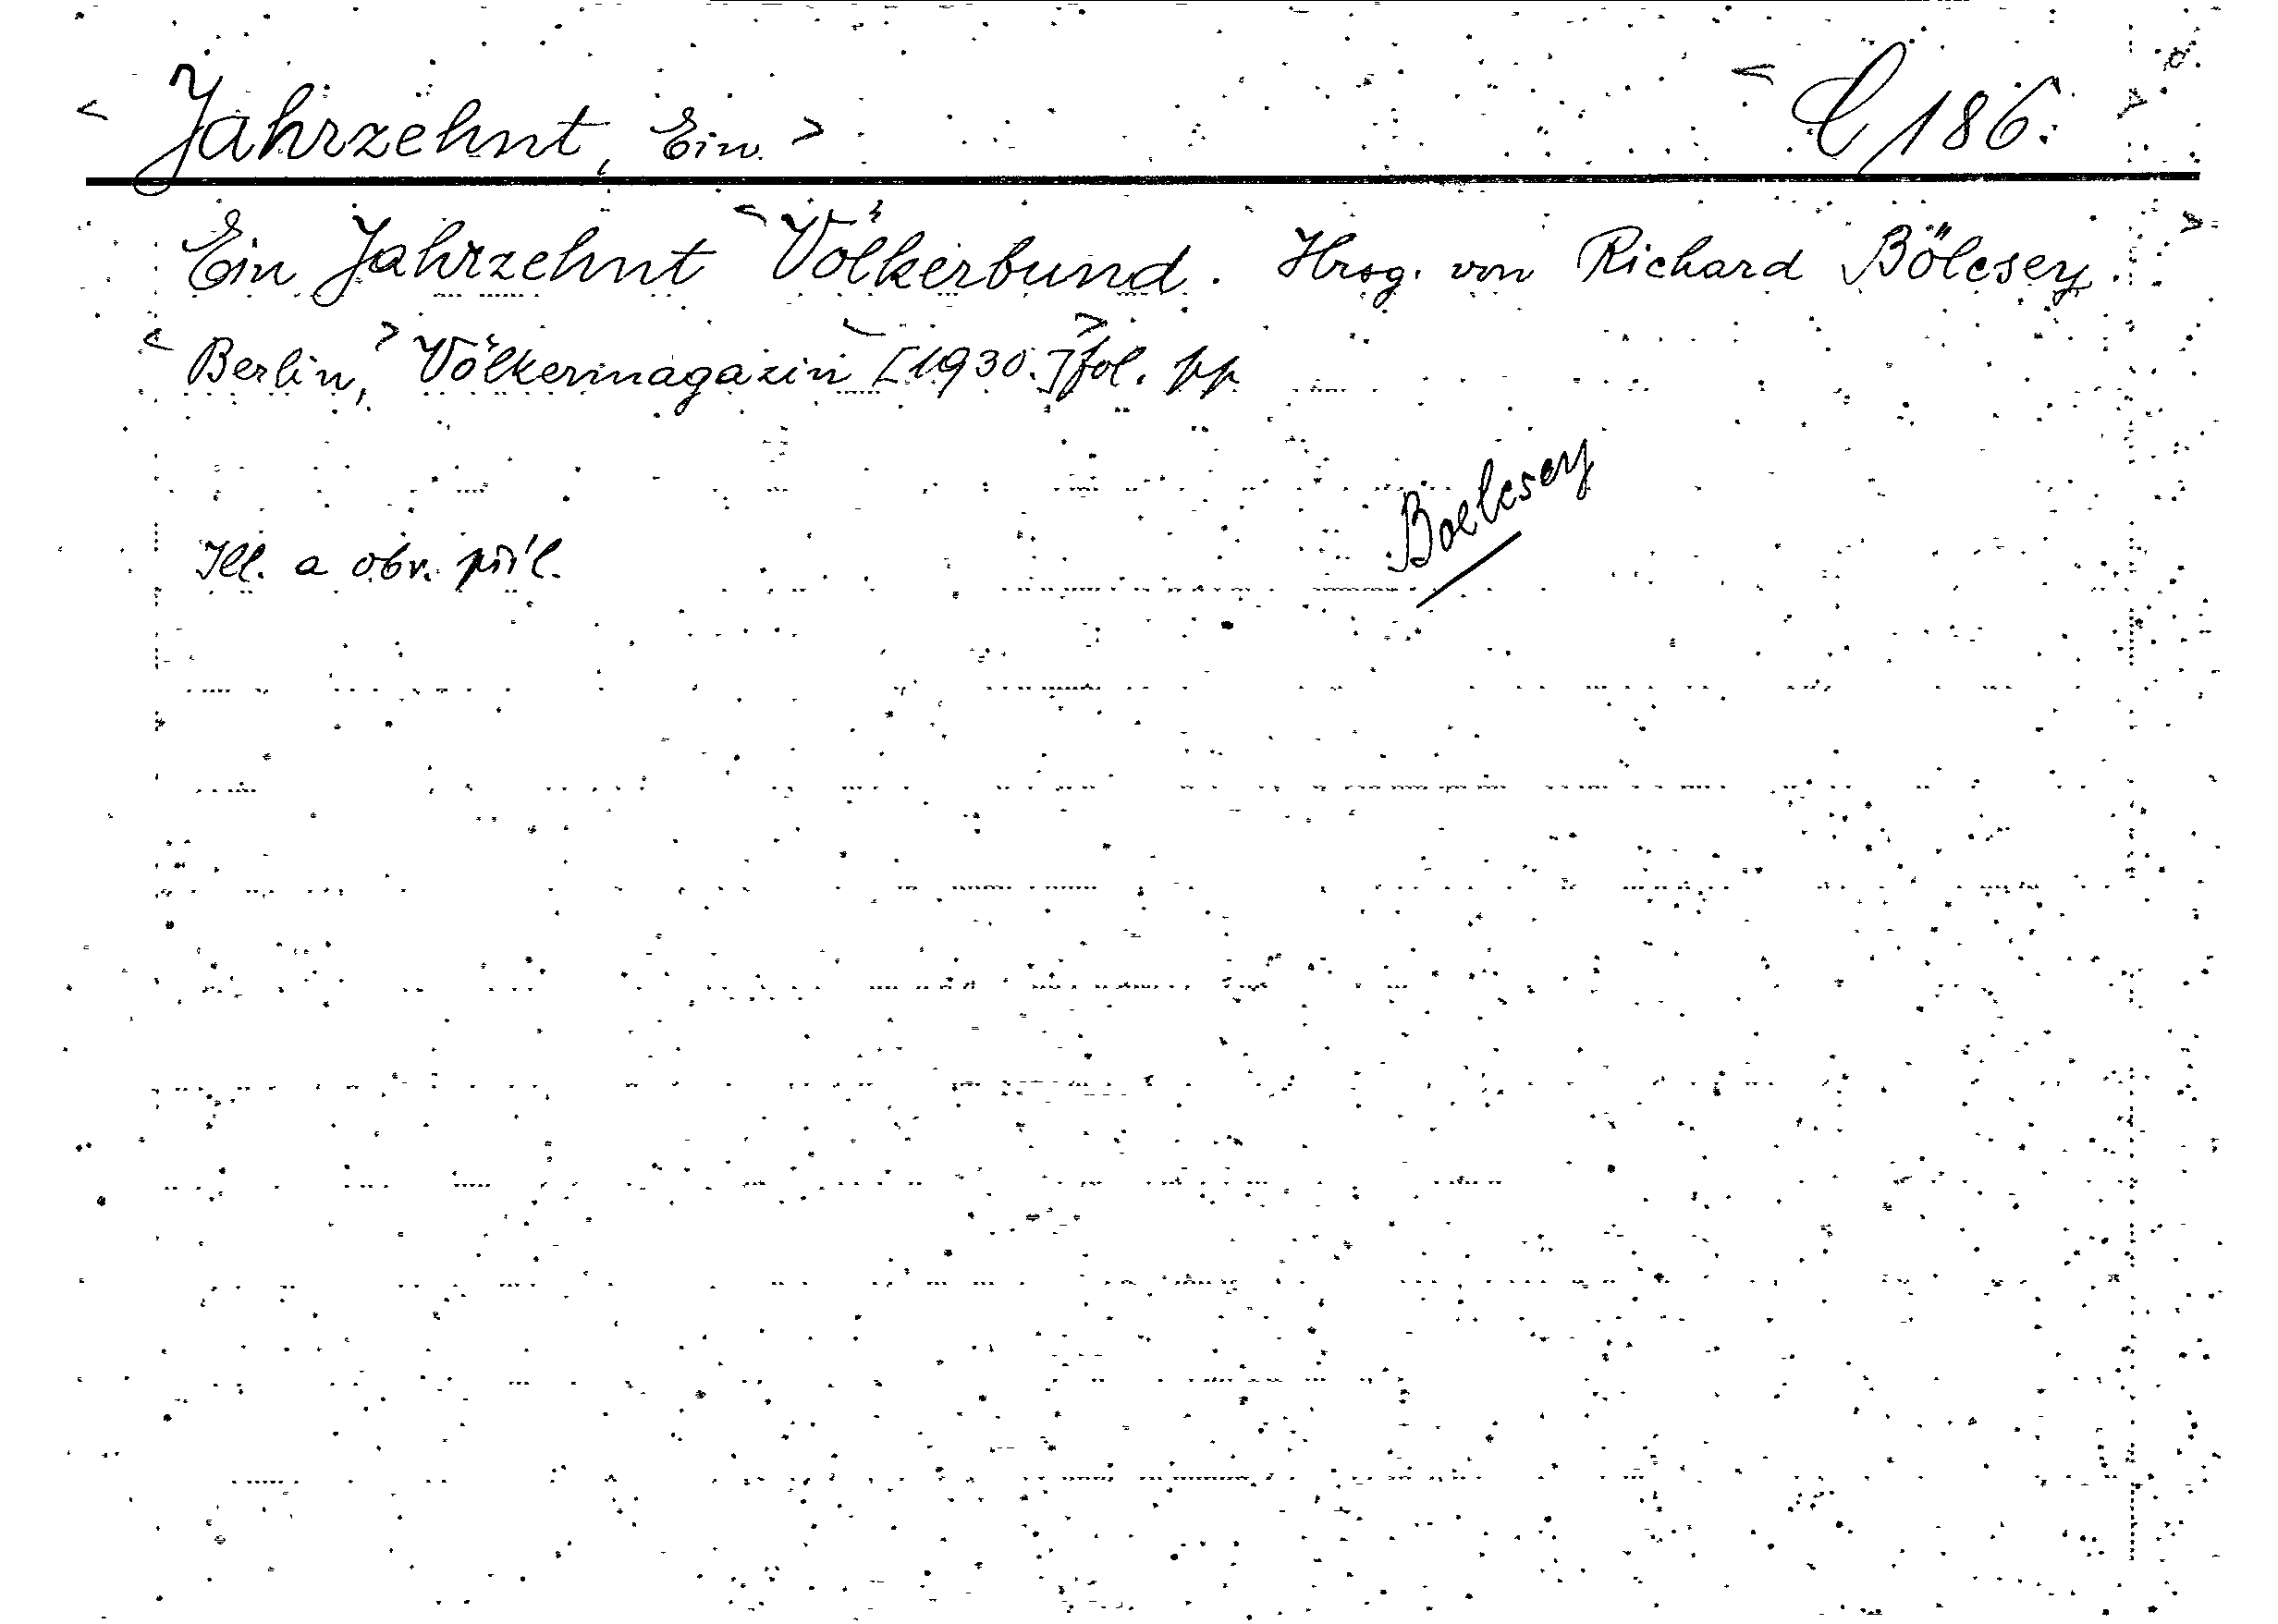 < Jahrzehnt, Ein. > < C 186. >
Ein Jahrzehnt < Völkerbund. Hrsg. von Richard Bölcsey. >
< Berlin, > Völkermagazin < [1930.] > fol. pp
Boelcsey
Ill. a obv. příl.